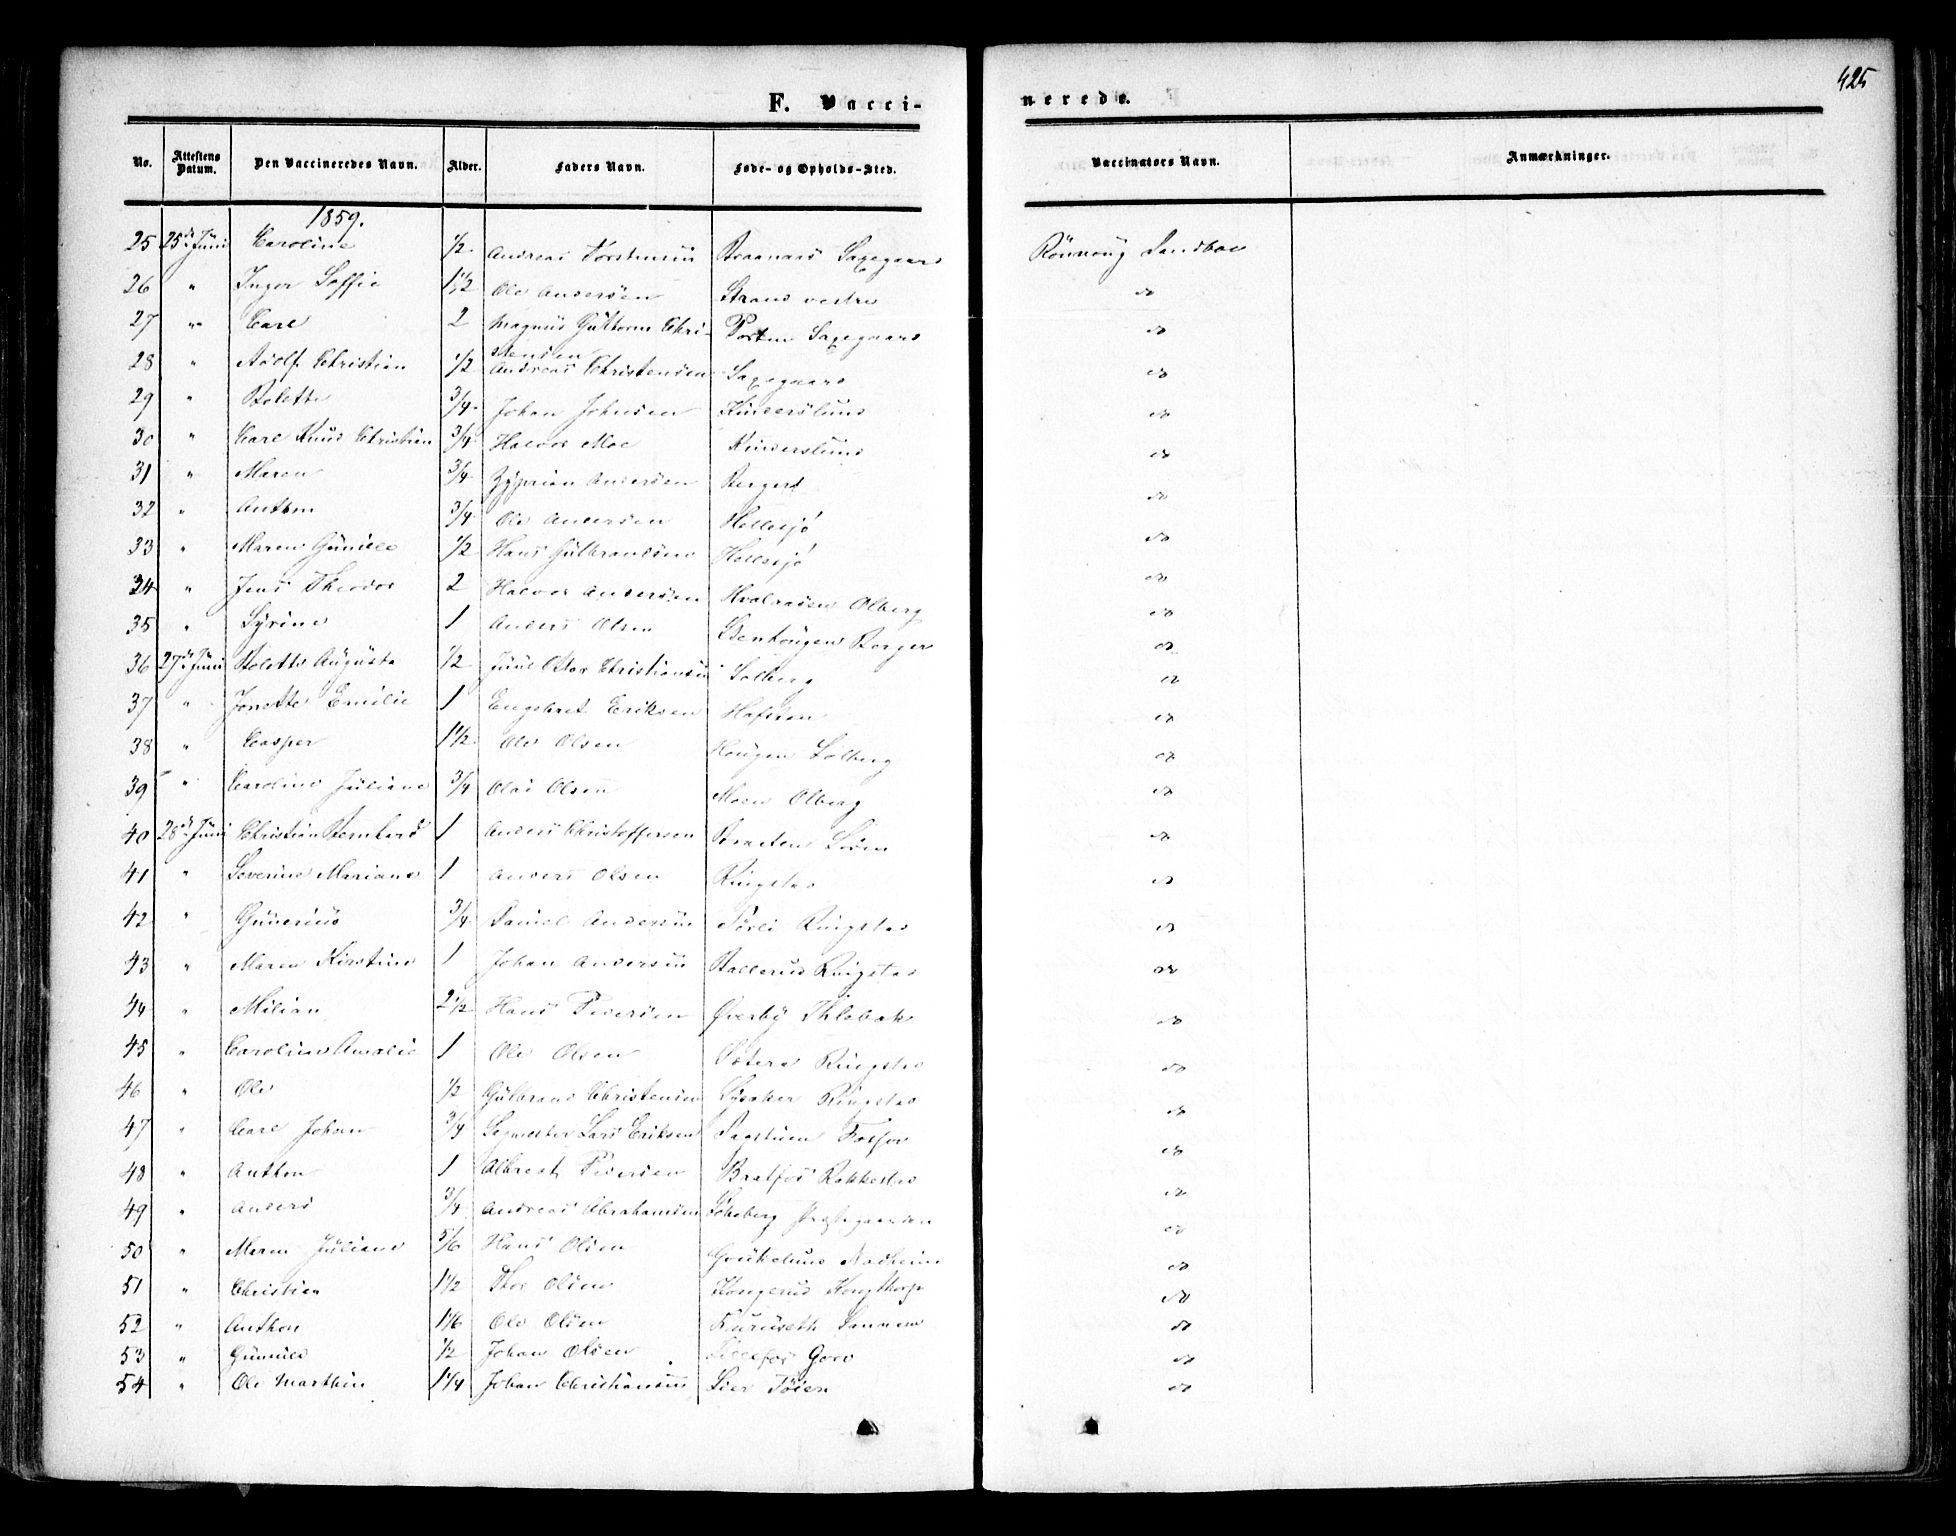 425
F. Vaccinerede.
No. Attestens Datum. Den Vaccineredes Navn. Alder. Faders Navn. Føde- og Opholds-Sted. Vaccinators Navn. Anmærkninger.
1859.
25 25de Juni Caroline 1/2 Andreas Torstensen Braanaas Saxegaard Rönnoug Sandboe
26 " Inger Soffie 1 1/2 Ole Andersen Strand vestre do
27 " Carl 2 Magnus Guttorm Chri- Saxegaard do
stensen
28 " Adolf Christian 1/2 Andreas Christensen Saxegaard do
29 " Bolette 3/4 Johan Johnsen Kinderslund do
30 " Carl Knud Christian 3/4 Halvor Moe Kinderslund do
31 " Maren 3/4 Zyprian Andersen Berger do
32 " Anthon 3/4 Ole Andersen Hellesjö do
33 " Maren Gunilde 1/2 Hans Gulbrandsen Hellesjö do
34 " Jens Theodor 2 Halvor Andersen Olberg do
35 " Syrine 1 Anders Olsen Stenhougen Berger do
36 27de Juni Bolette Augusta 1/2 Juul Christiansen Solberg do
37 " Jonette Emilie 1 Engebret Eriksen Hafsten do
38 " Casper 1 1/2 Ole Olsen Hougen Solberg do
39 " Caroline Juliane 3/4 Olai Olsen Moen Olberg do
40 28de Juni Christian Bernhard 1 Anders Christoffersen Braaten do
41 " Severine Mariane 1 Anders Olsen Ringstad do
42 " Gunerius 3/4 Daniel Andersen Ringstad do
43 " Maren Kirstine 1 Johan Andersen Ballerud Ringstad do
44 " Milian 2 1/2 Hans Pedersen Øverby do
45 " Caroline Amalie 1 Ole Olsen Ringstad do
46 " Ole 1/2 Gulbrand Christensen Lysaker Ringstad do
47 " Carl Johan 3/4 Lars Eriksen Fosfos do
48 " Anthon 1 Albrect Pedersen Bratfos Rakkestad do
49 " Anders 3/4 Andreas Abrahamsen Præstegaarden do
50 " Maren Juliane 5/6 Hans Olsen do
51 " Christian 1 1/2 Thor Olsen Kongerud Kongthorp do
52 " Anthon 1 1/6 Ole Olsen do
53 " Gunild 1/2 Johan Olsen Lillefos do
54 " Ole Marthin 1 1/4 Johan Christiansen Lier Töien do